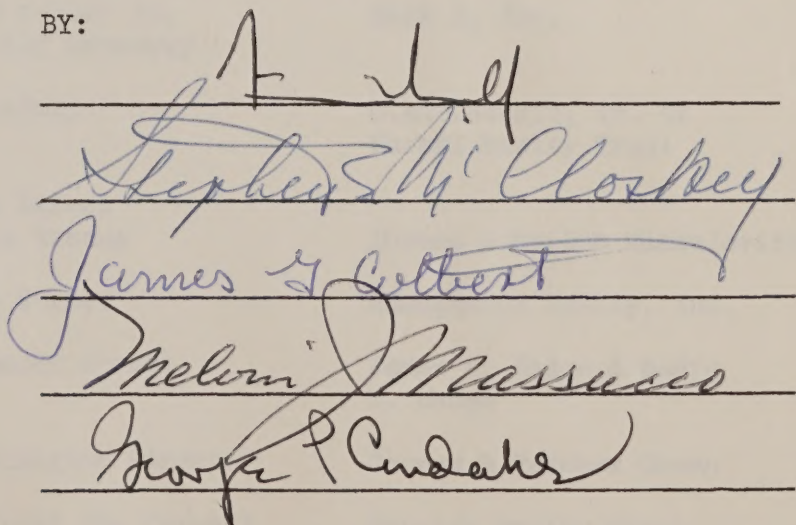 BY:
Stephen E McCloskey
James G Colbert
Melvin J Massucco
George P Condakes